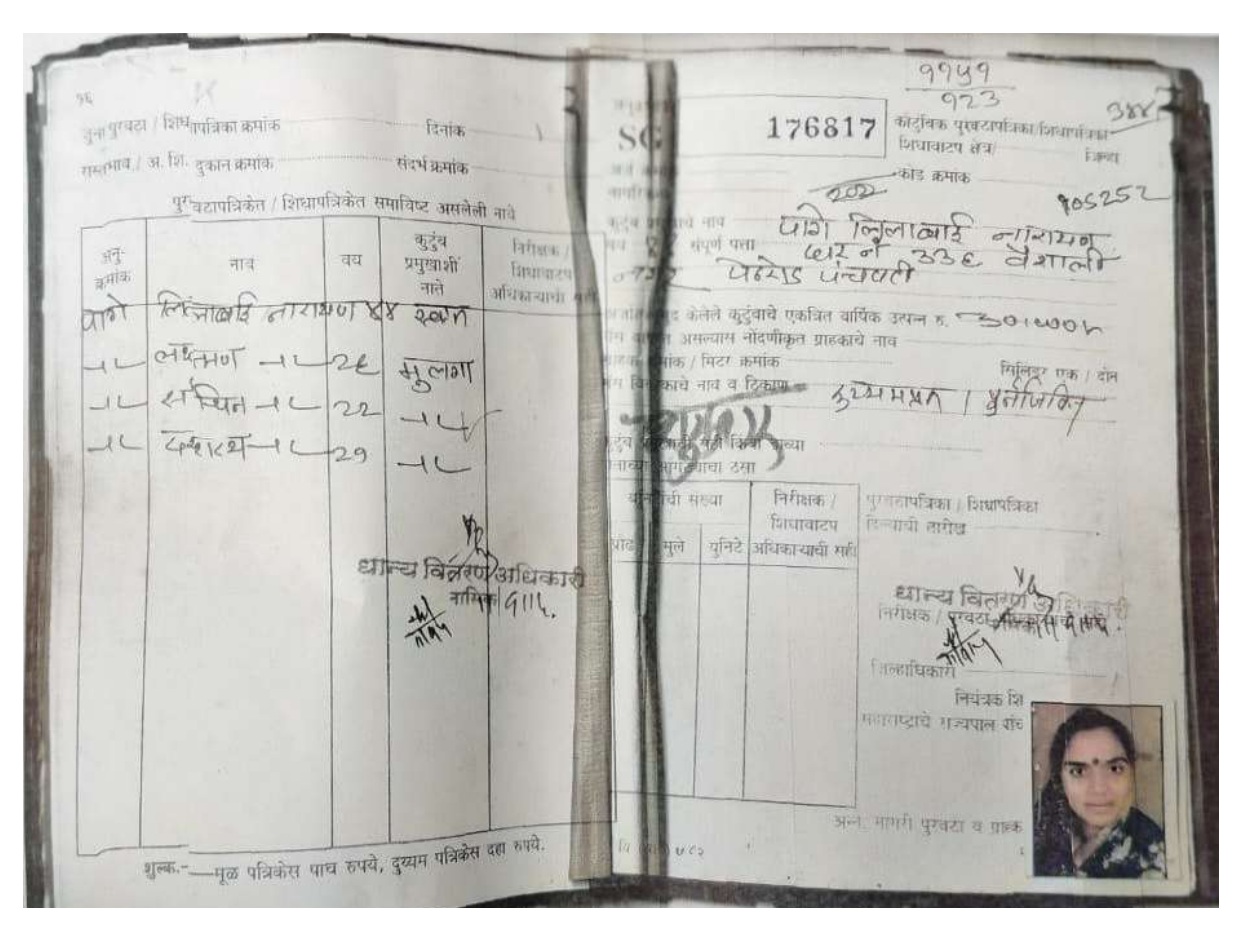 १६
जुना पुरवठा / शिधापत्रिका क्रमांक दिनांक
रास्तभाव / अ. शि. दुकान क्रमांक संदर्भ क्रमांक
पुरवठापत्रिकेत / शिधापत्रिकेत समाविष्ट असलेली नावे
अनु-क्रमांक नाव वय कुटुंब प्रमुखाशी नाते निरीक्षक / शिधावाटप अधिकाऱ्याची सही
पागे लिलाबाई नारायण ४४ स्वतः
-॥- लक्ष्मण -॥- २६ मुलगा
-॥- सचिन -॥- २२ -॥-
-॥- दशरथ -॥- २१ -॥-
धान्य वितरण अधिकारी
नाशिक
शुल्क.-—मूळ पत्रिकेस पाच रुपये, दुय्यम पत्रिकेस दहा रुपये.
११५१
१२३
३४४
SG 176817
कौटुंबिक पुरवठापत्रिका/शिधापत्रिका
शिधावाटप क्षेत्र/ जिल्हा
कोड क्रमांक
२०२२ १०५२५२
कुटुंब प्रमुखाचे नाव पागे लिलाबाई नारायण
वय ४४ संपूर्ण पत्ता घर नं ३३६ वैशाली
नगर पेठरोड पंचवटी
केलेले कुटुंबाचे एकत्रित वार्षिक उत्पन्न रु.
गॅस असल्यास नोंदणीकृत ग्राहकाचे नाव
ग्राहक क्रमांक / मिटर क्रमांक सिलिंडर एक / दोन
गॅस वितरकाचे नाव व ठिकाण
दुय्यमप्रत
युनिटांची संख्या निरीक्षक / शिधावाटप अधिकाऱ्याची सही
प्रौढ मुले युनिटे
पुरवठापत्रिका / शिधापत्रिका
दिल्याची तारीख
धान्य वितरण अधिकारी
निरीक्षक / पुरवठा
जिल्हाधिकारी
नियंत्रक शि
महाराष्ट्राचे राज्यपाल यांच
अन्न, नागरी पुरवठा व ग्राहक